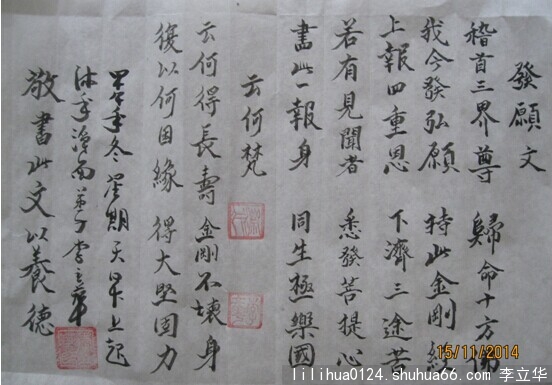 發願文
稽首三界尊 歸命十方佛
我今發弘願 持此金剛經
上報四重恩 下濟三途苦
若有見聞者 悉發菩提心
盡此一報身 同生極樂國
云何梵
云何得長壽 金剛不壞身
復以何因緣 得大堅固力
甲午年冬星期天早上起
沐手淨面弟子李立華
敬書此文以養德
15/11/2014
lilihua0124.shuhua66.com 李立华